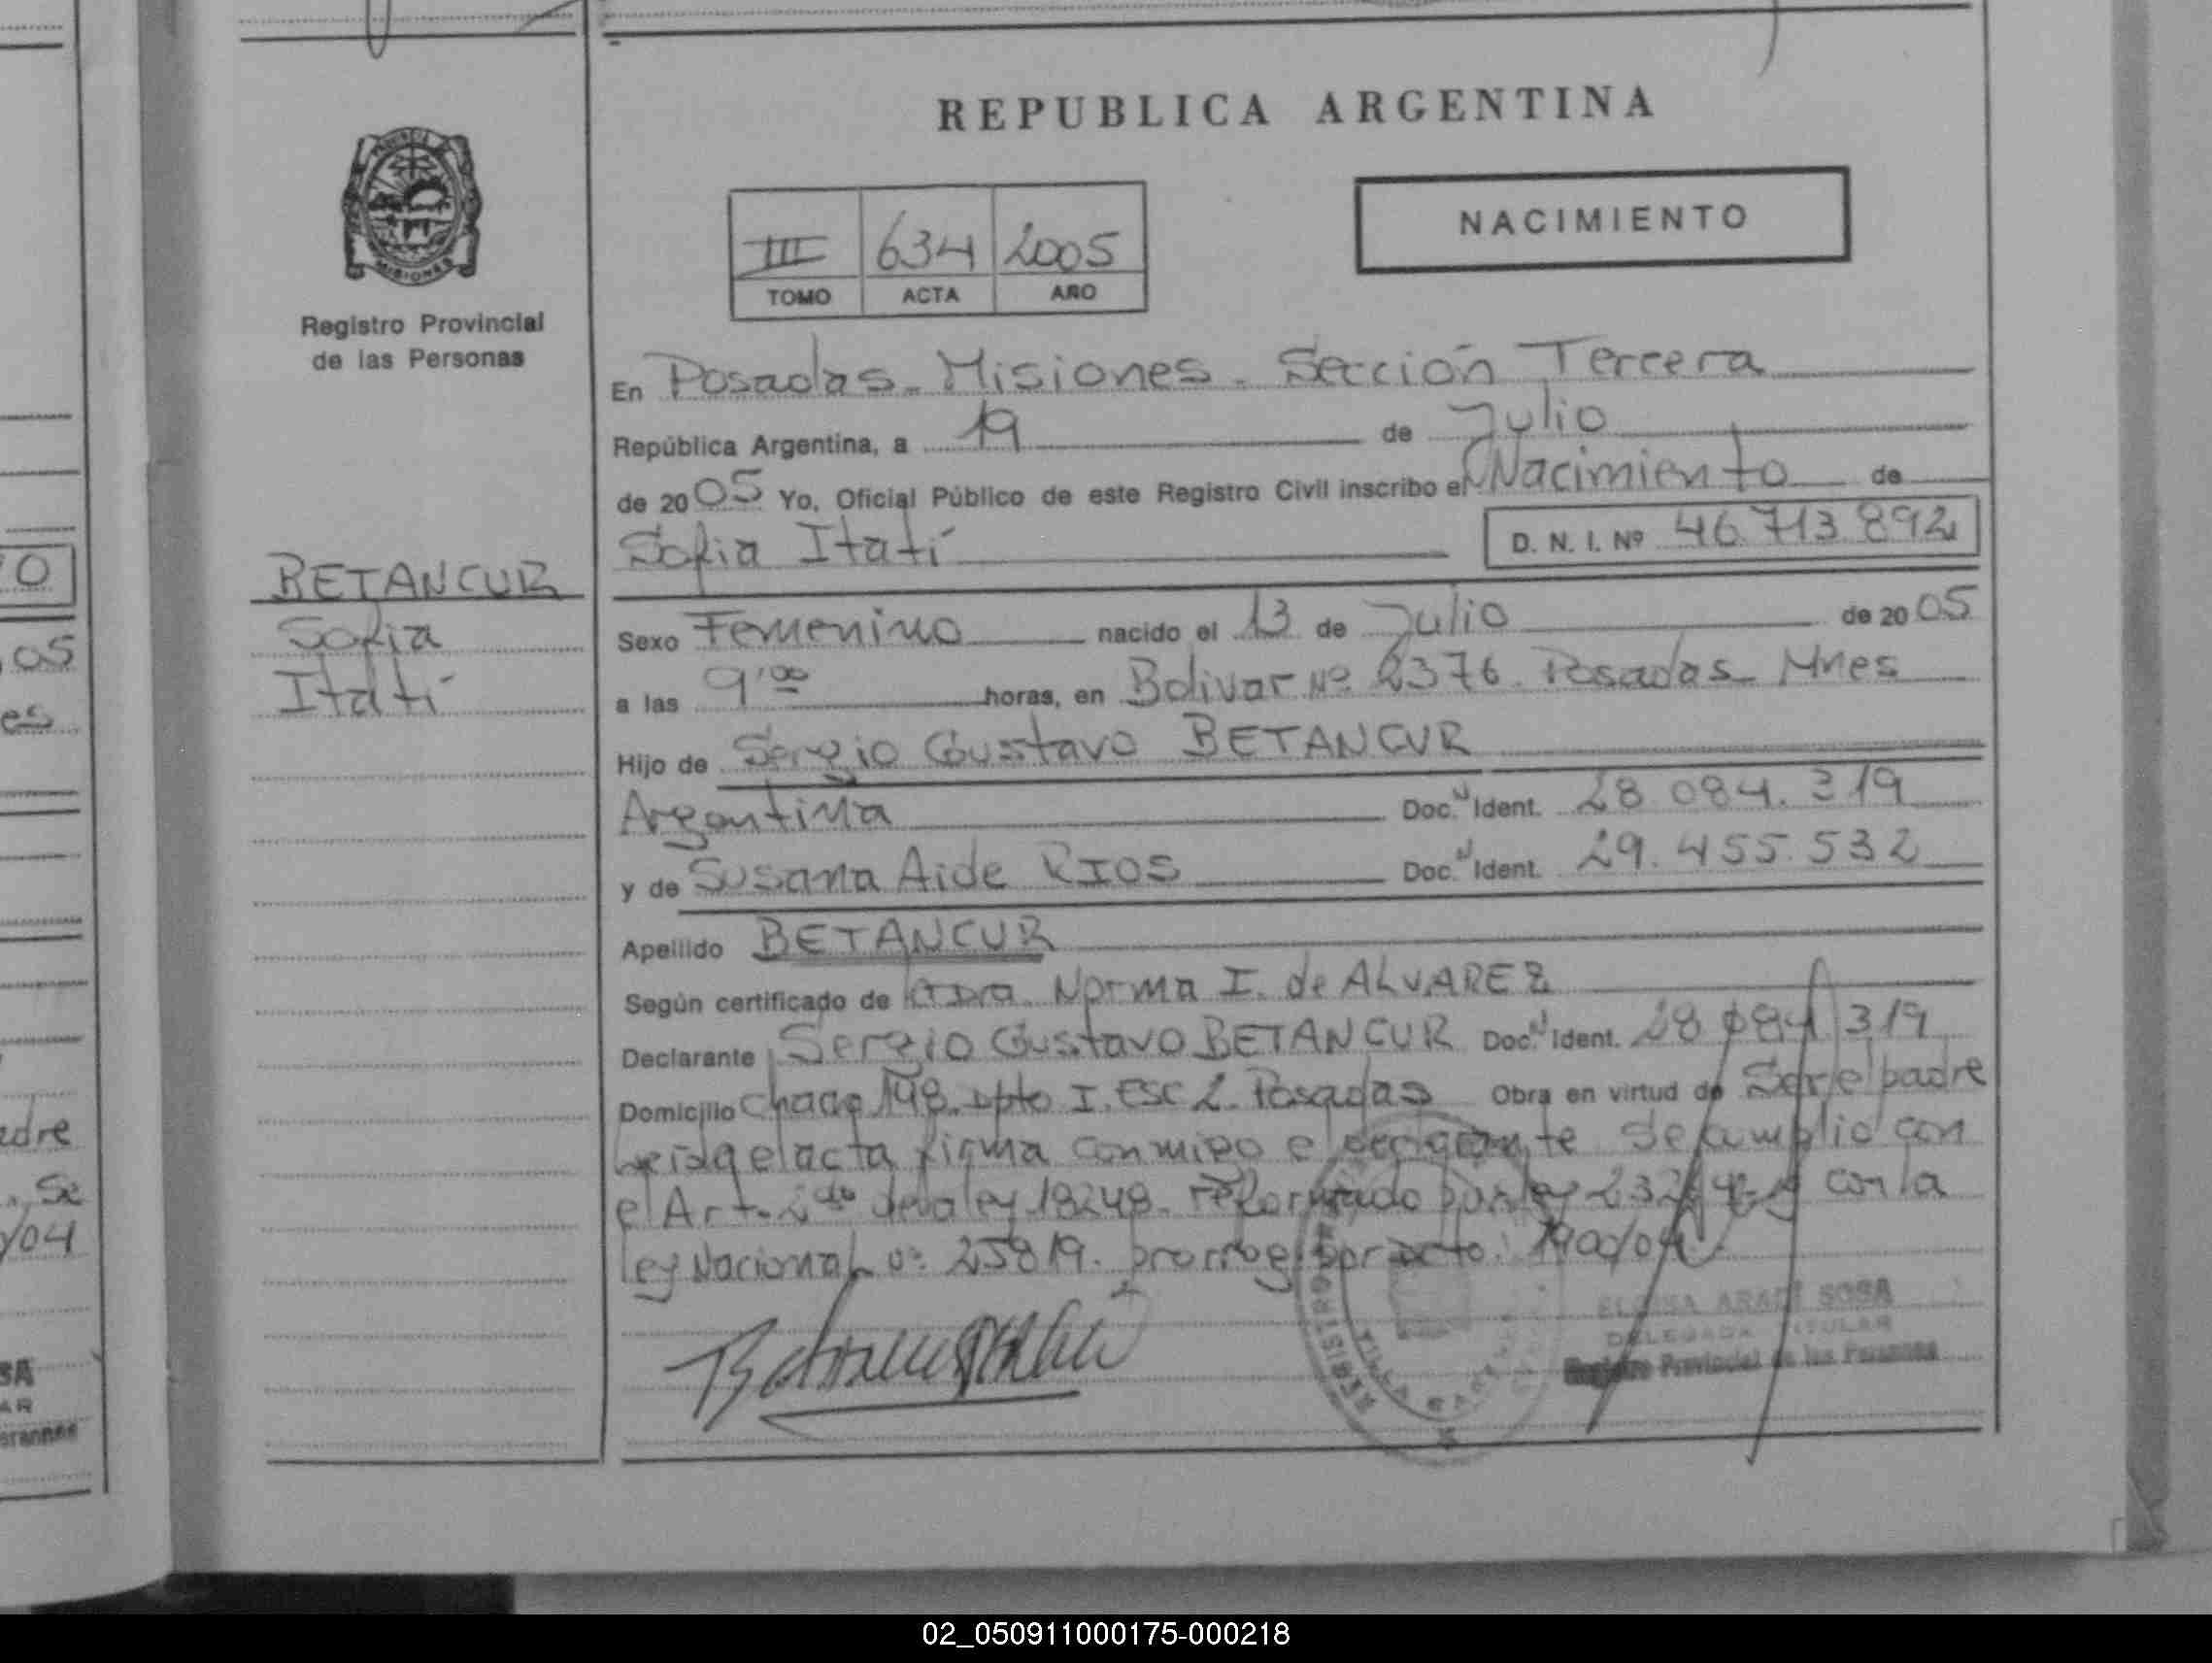 REPUBLICA ARGENTINA
PROVINCIA
MISIONES
Registro Provincial
de las Personas
NACIMIENTO
III 634 2005
TOMO ACTA AÑO
En Posadas - Misiones - Sección Tercera
República Argentina, a 19 de Julio
de 2005 Yo, Oficial Público de este Registro Civil inscribo el Nacimiento de
Sofia Itatí D. N. I. Nº 46.713.892
BETANCUR
Sofia
Itatí
Sexo Femenino nacido el 13 de Julio de 2005
a las 9'00 horas, en Bolivar Nº 2376. Posadas - Mnes
Hijo de Sergio Gustavo BETANCUR
Argentina Doc. Ident. 28.084.319
y de Susana Aide RIOS Doc. Ident. 29.455.532
Apellido BETANCUR
Según certificado de Norma I. de ALVAREZ
Declarante Sergio Gustavo BETANCUR Doc. Ident. 28.084.319
Domicilio Chacra 148. Dpto I. ESC 2. Posadas Obra en virtud de Ser el padre
el acta firma conmigo e declarante Se cumplio con
el Art. 2do de la ley 18248. reformado por ley con la
ley Nacional nº 25819. prorrog. por Dcto.
ELOISA ARADI SOSA
DELEGADA TITULAR
Registro Provincial de las Personas
70
05
es
adre
Se
/04
SA
AR
ersonas
02_050911000175-000218